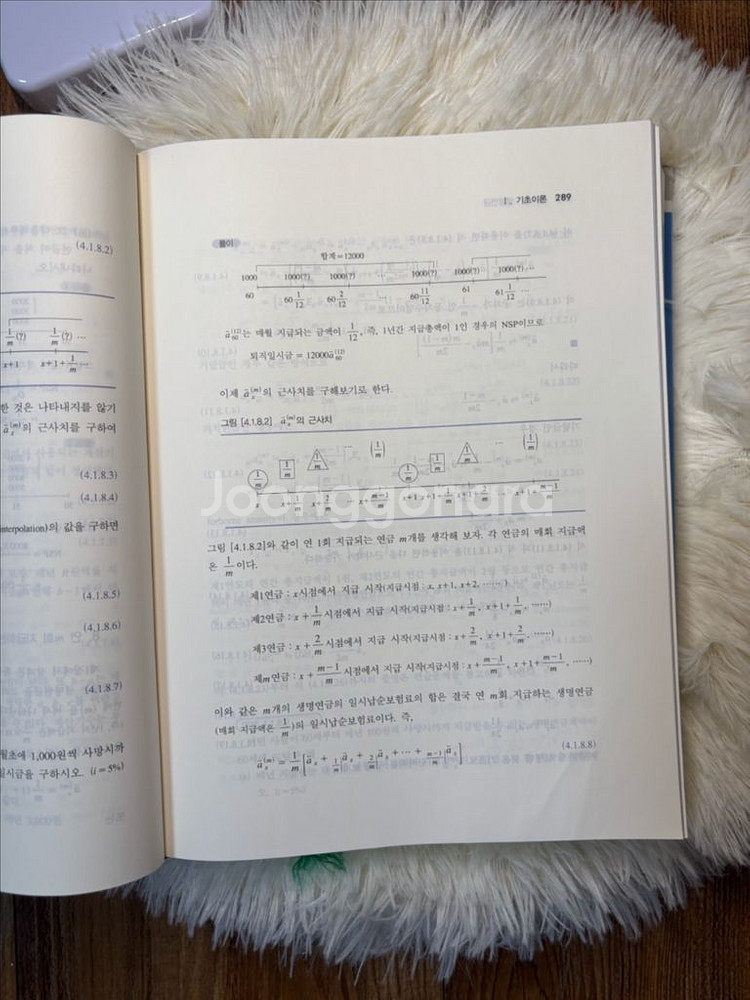 (4.1.8.2)
1/m (?) 1/m (?) ...
x+1 x+1+1/m ...
한 것은 나타내지를 않기
ä_x^(m)의 근사치를 구하여
(4.1.8.3)
(4.1.8.4)
interpolation)의 값을 구하면
(4.1.8.5)
(4.1.8.6)
(4.1.8.7)
월초에 1,000원씩 사망시까
일시금을 구하시오. (i=5%)
기초이론 289
풀이
합계=12000
1000 1000(?) 1000(?) 1000(?) 1000(?) 1000(?) ...
60 60 1/12 60 2/12 60 11/12 61 61 1/12 ...
ä_60^(12)는 매월 지급되는 금액이 1/12, 즉, 1년간 지급총액이 1인 경우의 NSP이므로
퇴직일시금 = 12000ä_60^(12)
이제 ä_x^(m)의 근사치를 구해보기로 한다.
그림 [4.1.8.2] ä_x^(m)의 근사치
1/m 1/m 1/m ... (1/m) 1/m 1/m 1/m ... (1/m)
Joonggonara
그림 [4.1.8.2]와 같이 연 1회 지급되는 연금 m개를 생각해 보자. 각 연금의 매회 지급액
은 1/m이다.
제1연금 : x시점에서 지급 시작(지급시점 : x, x+1, x+2, ……)
제2연금 : x + 1/m 시점에서 지급 시작(지급시점 : x+1/m, x+1+1/m, ……)
제3연금 : x + 2/m 시점에서 지급 시작(지급시점 : x+2/m, x+1+2/m, ……)
제m연금 : x + (m−1)/m 시점에서 지급 시작(지급시점 : x+(m−1)/m, x+1+(m−1)/m, ……)
이와 같은 m개의 생명연금의 일시납순보험료의 합은 결국 연 m회 지급하는 생명연금
(매회 지급액은 1/m)의 일시납순보험료이다. 즉,
ä_x^(m) = 1/m [ä_x + 1/m|ä_x + 2/m|ä_x + ⋯ + (m−1)/m|ä_x] (4.1.8.8)